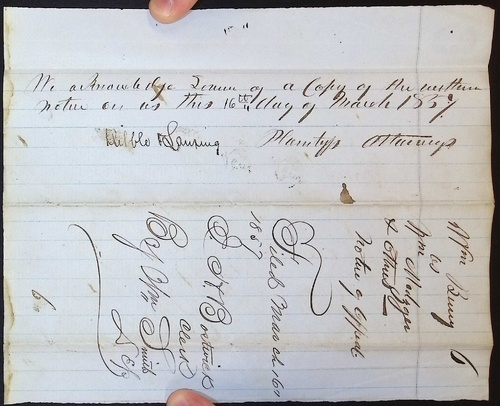 We acknowledge Service of a Copy of the within
notice on us this 16th day of March 1857
Hibble & Lansing Plaintiffs Attorneys
Wm Berry
vs
Wm
& others
Notice of Appeal
Filed March 16th
1857
J H Bostwick
Clerk
By Wm Smith
Dep
6